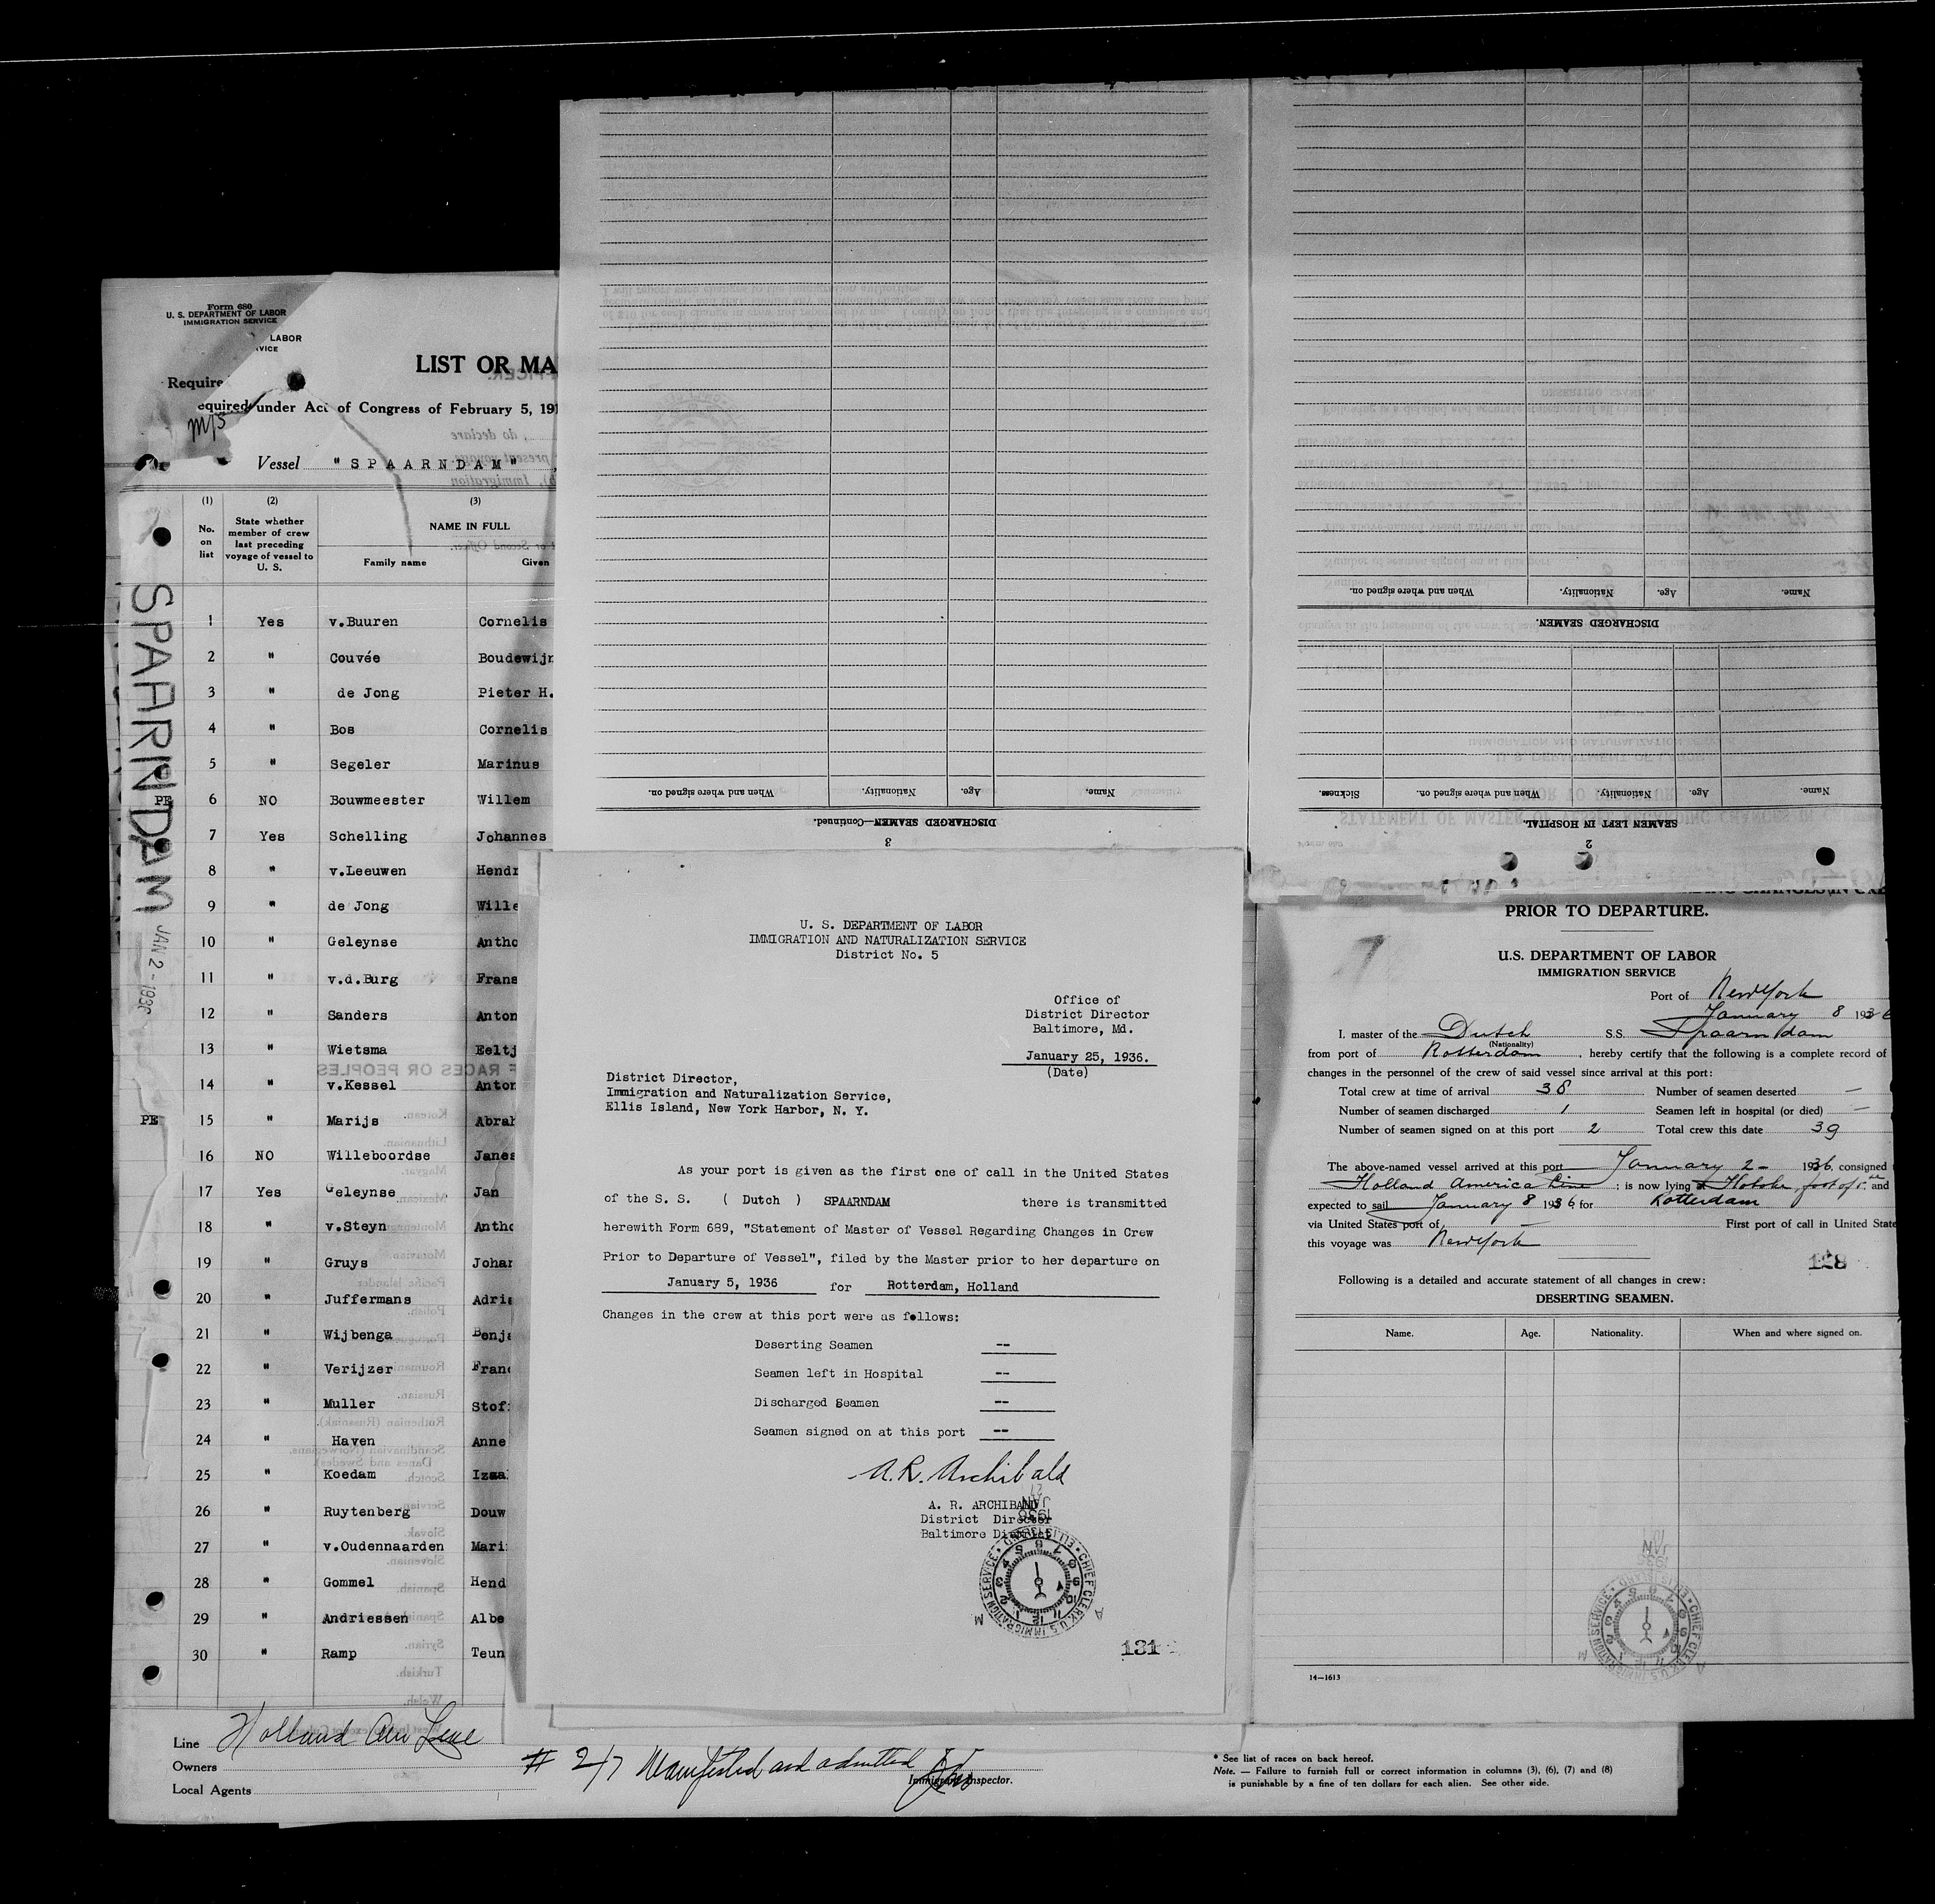 Form 680
U. S. DEPARTMENT OF LABOR
IMMIGRATION SERVICE
LABOR
VICE
LIST OR MA
Require
equired under Act of Congress of February 5, 191
Vessel "SPAARNDAM" ,
(1) (2) (3)
No. on list
State whether member of crew last preceding voyage of vessel to U. S.
NAME IN FULL
Family name Given
1 Yes v.Buuren Cornelis
2 " Couvée Boudewijn
3 " de Jong Pieter H.
4 " Bos Cornelis
5 " Segeler Marinus
PE 6 NO Bouwmeester Willem
7 Yes Schelling Johannes
8 " v.Leeuwen Hendr
9 " de Jong Wille
10 " Geleynse Antho
11 " v.d.Burg Frans
12 " Sanders Anton
13 " Wietsma Eeltj
14 " v.Kessel Anton
PE 15 " Marijs Abrah
16 NO Willeboordse Janes
17 Yes Geleynse Jan
18 " v.Steyn Antho
19 " Gruys Johan
20 " Juffermans Adria
21 " Wijbenga Benja
22 " Verijzer Franc
23 " Muller Stof
24 " Haven Anne
25 " Koedam Izaa
26 " Ruytenberg Douw
27 " v.Oudennaarden Mari
28 " Gommel Hend
29 " Andriessen Albe
30 " Ramp Teun
SPAARNDAM
JAN 2 - 1936
Line Holland Am Line
Owners
Local Agents
# 2/7 Manifested and admitted
Immigrant Inspector.
* See list of races on back hereof.
Note. — Failure to furnish full or correct information in columns (3), (6), (7) and (8)
is punishable by a fine of ten dollars for each alien. See other side.
3
DISCHARGED SEAMEN—Continued.
Name. Age. Nationality. When and where signed on.
2
SEAMEN LEFT IN HOSPITAL.
Name. Age. Nationality. When and where signed on. Sickness.
DISCHARGED SEAMEN.
Name. Age. Nationality. When and where signed on.
U. S. DEPARTMENT OF LABOR
IMMIGRATION AND NATURALIZATION SERVICE
District No. 5
Office of
District Director
Baltimore, Md.
January 25, 1936.
(Date)
District Director,
Immigration and Naturalization Service,
Ellis Island, New York Harbor, N. Y.
As your port is given as the first one of call in the United States
of the S. S. ( Dutch ) SPAARNDAM there is transmitted
herewith Form 689, "Statement of Master of Vessel Regarding Changes in Crew
Prior to Departure of Vessel", filed by the Master prior to her departure on
January 5, 1936 for Rotterdam, Holland
Changes in the crew at this port were as follows:
Deserting Seamen --
Seamen left in Hospital --
Discharged Seamen --
Seamen signed on at this port --
A.R. Archibald
A. R. ARCHIBALD
District Director
Baltimore District
CHIEF CLERK U.S. IMMIGRATION SERVICE
131
PRIOR TO DEPARTURE.
U.S. DEPARTMENT OF LABOR
IMMIGRATION SERVICE
Port of New York
January 8 1936
I, master of the Dutch S.S. Spaarndam
(Nationality)
from port of Rotterdam, hereby certify that the following is a complete record of
changes in the personnel of the crew of said vessel since arrival at this port:
Total crew at time of arrival 38 Number of seamen deserted —
Number of seamen discharged 1 Seamen left in hospital (or died) —
Number of seamen signed on at this port 2 Total crew this date 39
The above-named vessel arrived at this port January 2 - 1936, consigned
Holland America Line; is now lying at foot of 5 and
expected to sail January 8 1936 for Rotterdam
via United States port of — First port of call in United State
this voyage was New York
128
Following is a detailed and accurate statement of all changes in crew:
DESERTING SEAMEN.
Name. Age. Nationality. When and where signed on.
14—1613
CHIEF CLERK U.S. IMMIGRATION SERVICE